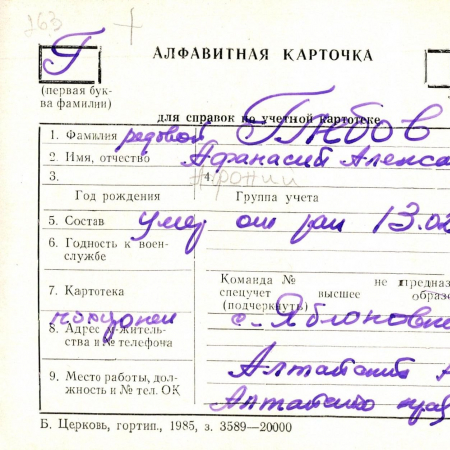 263 +
Г
АЛФАВИТНАЯ КАРТОЧКА
(первая бук-
ва фамилии)
для справок по учетной картотеке
1. Фамилия рядовой Глебов
2. Имя, отчество Афанасий Алекса
3. 4.
Год рождения Группа учета
5. Состав умер от ран 13.02
6. Годность к воен-
службе
Команда № не предназ
7. Картотека спецучет высшее образо
(подчеркнуть)
похоронен с. Яблоновка
8. Адрес м-житель-
ства и № телефона
Алтайский
9. Место работы, дол-
жность и № тел. ОК
Алтайского края
Б. Церковь, гортип., 1985, з. 3589—20000